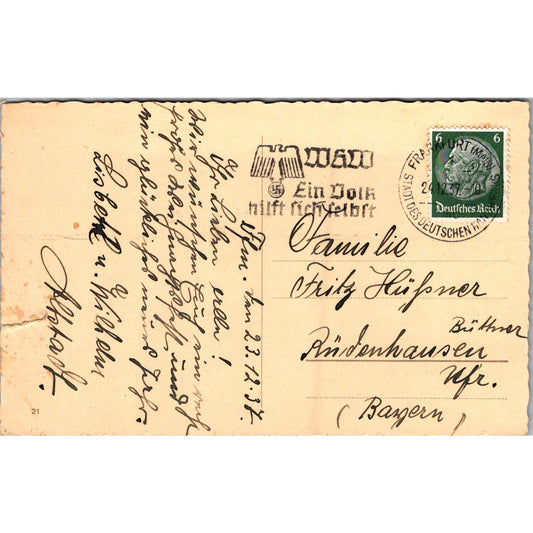 Ffm. den 23.12.37.
Ihr Lieben alle!
Wir wünschen Euch ein recht
frohes Weihnachtsfest und
ein glückliches neues Jahr.
Lisbeth u. Wilhelm
21
WHW
Ein Volk
hilft sich selbst
FRANKFURT (MAIN)
24.12.37
STADT DES DEUTSCHEN HANDWERKS
6 6
Deutsches Reich
Familie
Fritz Hüßner
Büttner
Rüdenhausen
Ufr.
(Bayern)